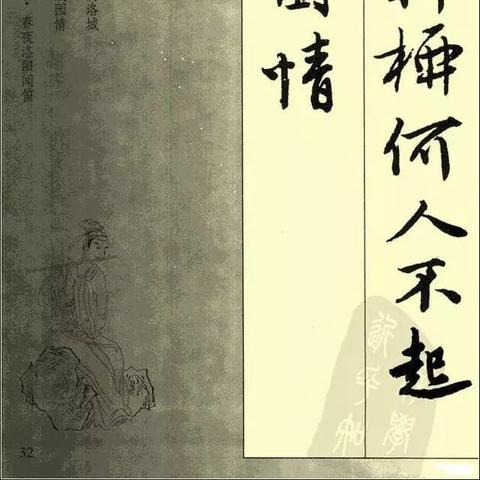 柳何人不起
園情
洛城
园情
·春夜洛阳闻笛
32